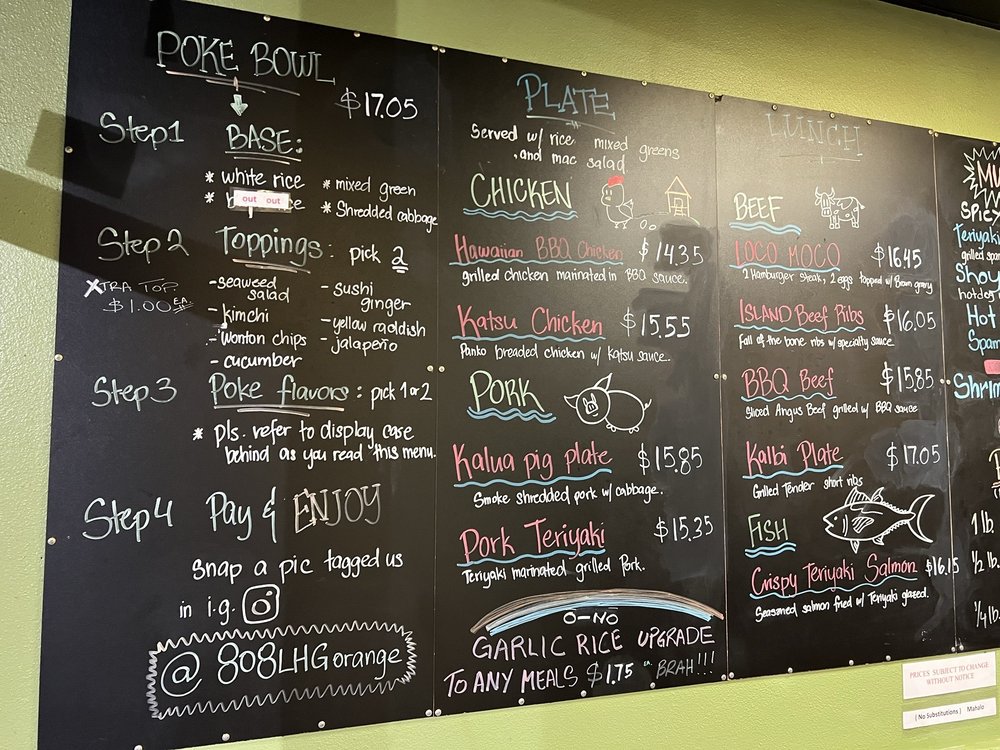 POKE BOWL
$17.05
Step 1
BASE:
* white rice
* mixed green
* out out
* Shredded cabbage
Step 2
Toppings: pick 2
XTRA TOP.
$1.00 EA.
-seaweed
salad
- kimchi
- wonton chips
- cucumber
- sushi
ginger
- yellow raddish
- jalapeño
Step 3
Poke flavors: pick 1 or 2
* pls. refer to display case
behind as you read this menu.
Step 4
Pay & ENJOY
snap a pic tagged us
in i.g.
@ 808LHGorange
PLATE
Served w/ rice mixed greens
and mac salad
CHICKEN
Hawaiian BBQ Chicken $14.35
grilled chicken marinated in BBQ sauce.
Katsu Chicken $15.55
Panko breaded chicken w/ Katsu sauce.
PORK
Kalua pig plate $15.85
Smoke shredded pork w/ cabbage.
Pork Teriyaki $15.35
Teriyaki marinated grilled Pork.
O-NO
GARLIC RICE UPGRADE
TO ANY MEALS $1.75 BRAH!!!
LUNCH
BEEF
LOCO MOCO $16.45
2 Hamburger steak, 2 eggs topped w/ Brown gravy
ISLAND Beef Ribs $16.05
Fall of the bone ribs w/ specialty sauce
BBQ Beef $15.85
Sliced Angus Beef grilled w/ BBQ sauce
Kalbi Plate $17.05
Grilled Tender short ribs
FISH
Crispy Teriyaki Salmon $16.15
Seasoned salmon fried w/ Teriyaki glazed.
MU
SPICY
Teriyaki
grilled spam
Shoy
hotdog
Hot
Spam
Shrim
1 lb.
1/2 lb.
1/4 lb.
PRICES SUBJECT TO CHANGE
WITHOUT NOTICE
( No Substitutions ) Mahalo